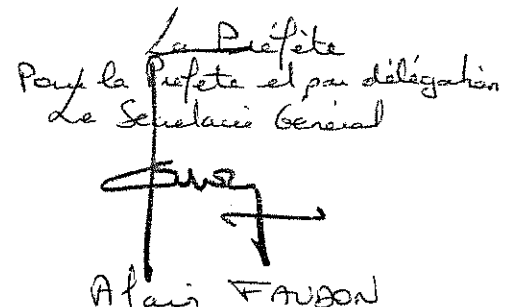 La Préfète
Pour la Préfete et par délégation
Le Secrétaire Général
Alain FAUDON